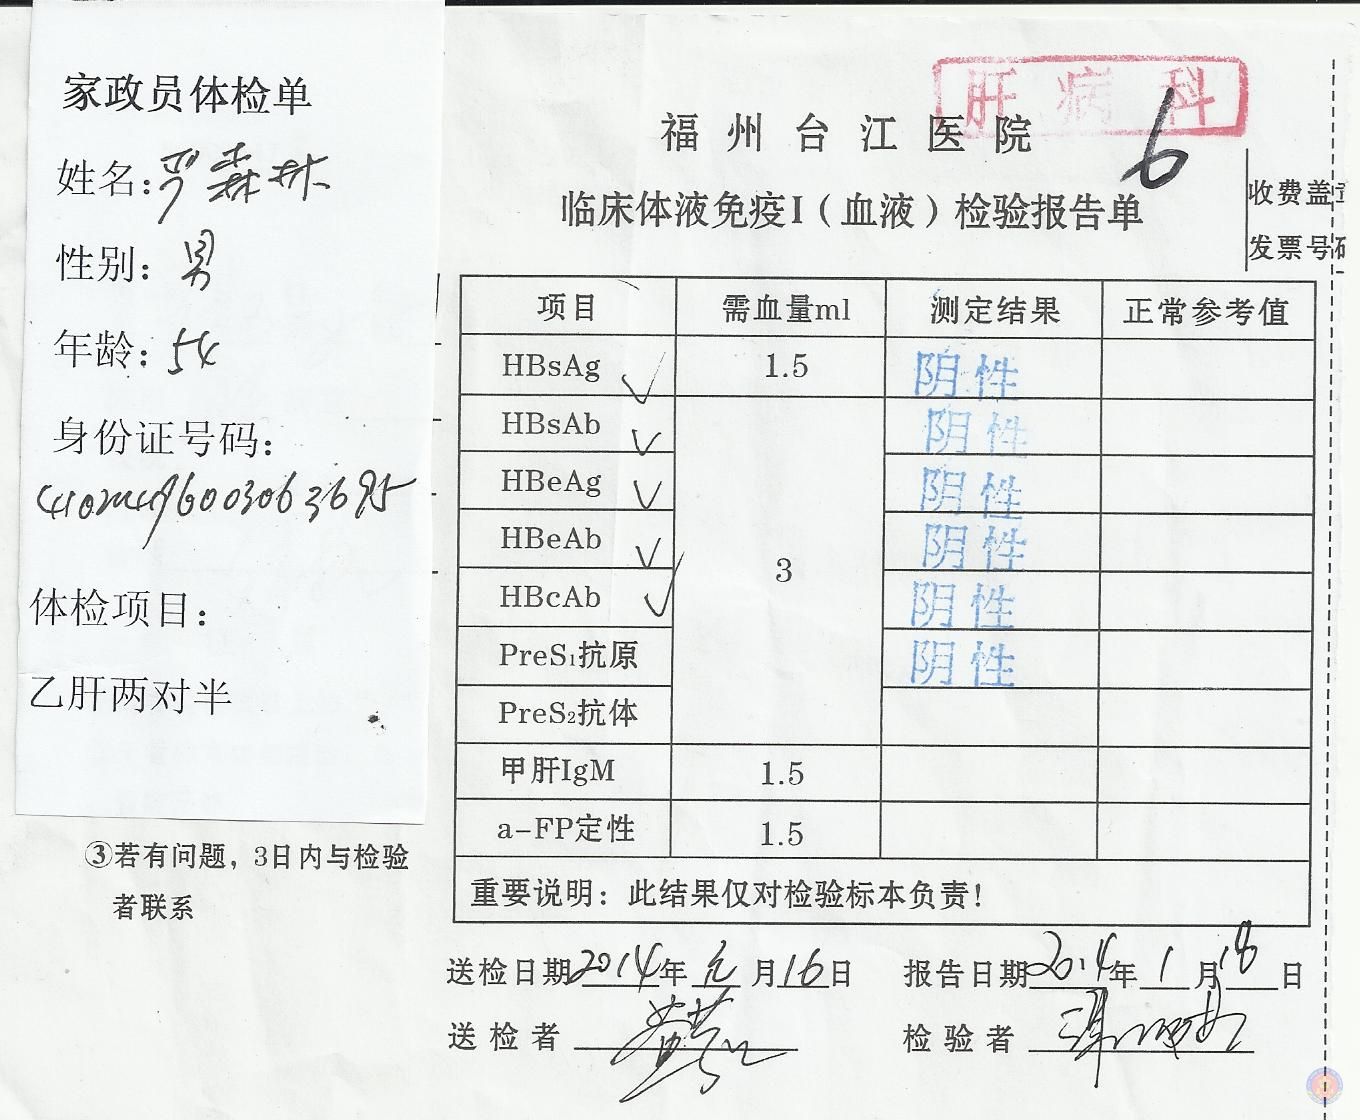 家政员体检单
姓名:严森林
性别: 男
年龄: 54
身份证号码:
体检项目:
乙肝两对半
③若有问题，3日内与检验
者联系
肝病科
福州台江医院
6
临床体液免疫I（血液）检验报告单
收费盖
发票号码
项目 需血量ml 测定结果 正常参考值
HBsAg ✓ 1.5 阴性
HBsAb ✓ 阴性
HBeAg ✓ 阴性
HBeAb ✓ 3 阴性
HBcAb ✓ 阴性
PreS₁抗原 阴性
PreS₂抗体
甲肝IgM 1.5
a-FP定性 1.5
重要说明：此结果仅对检验标本负责！
送检日期2014年元月16日 报告日期2014年1月18日
送检者 检验者